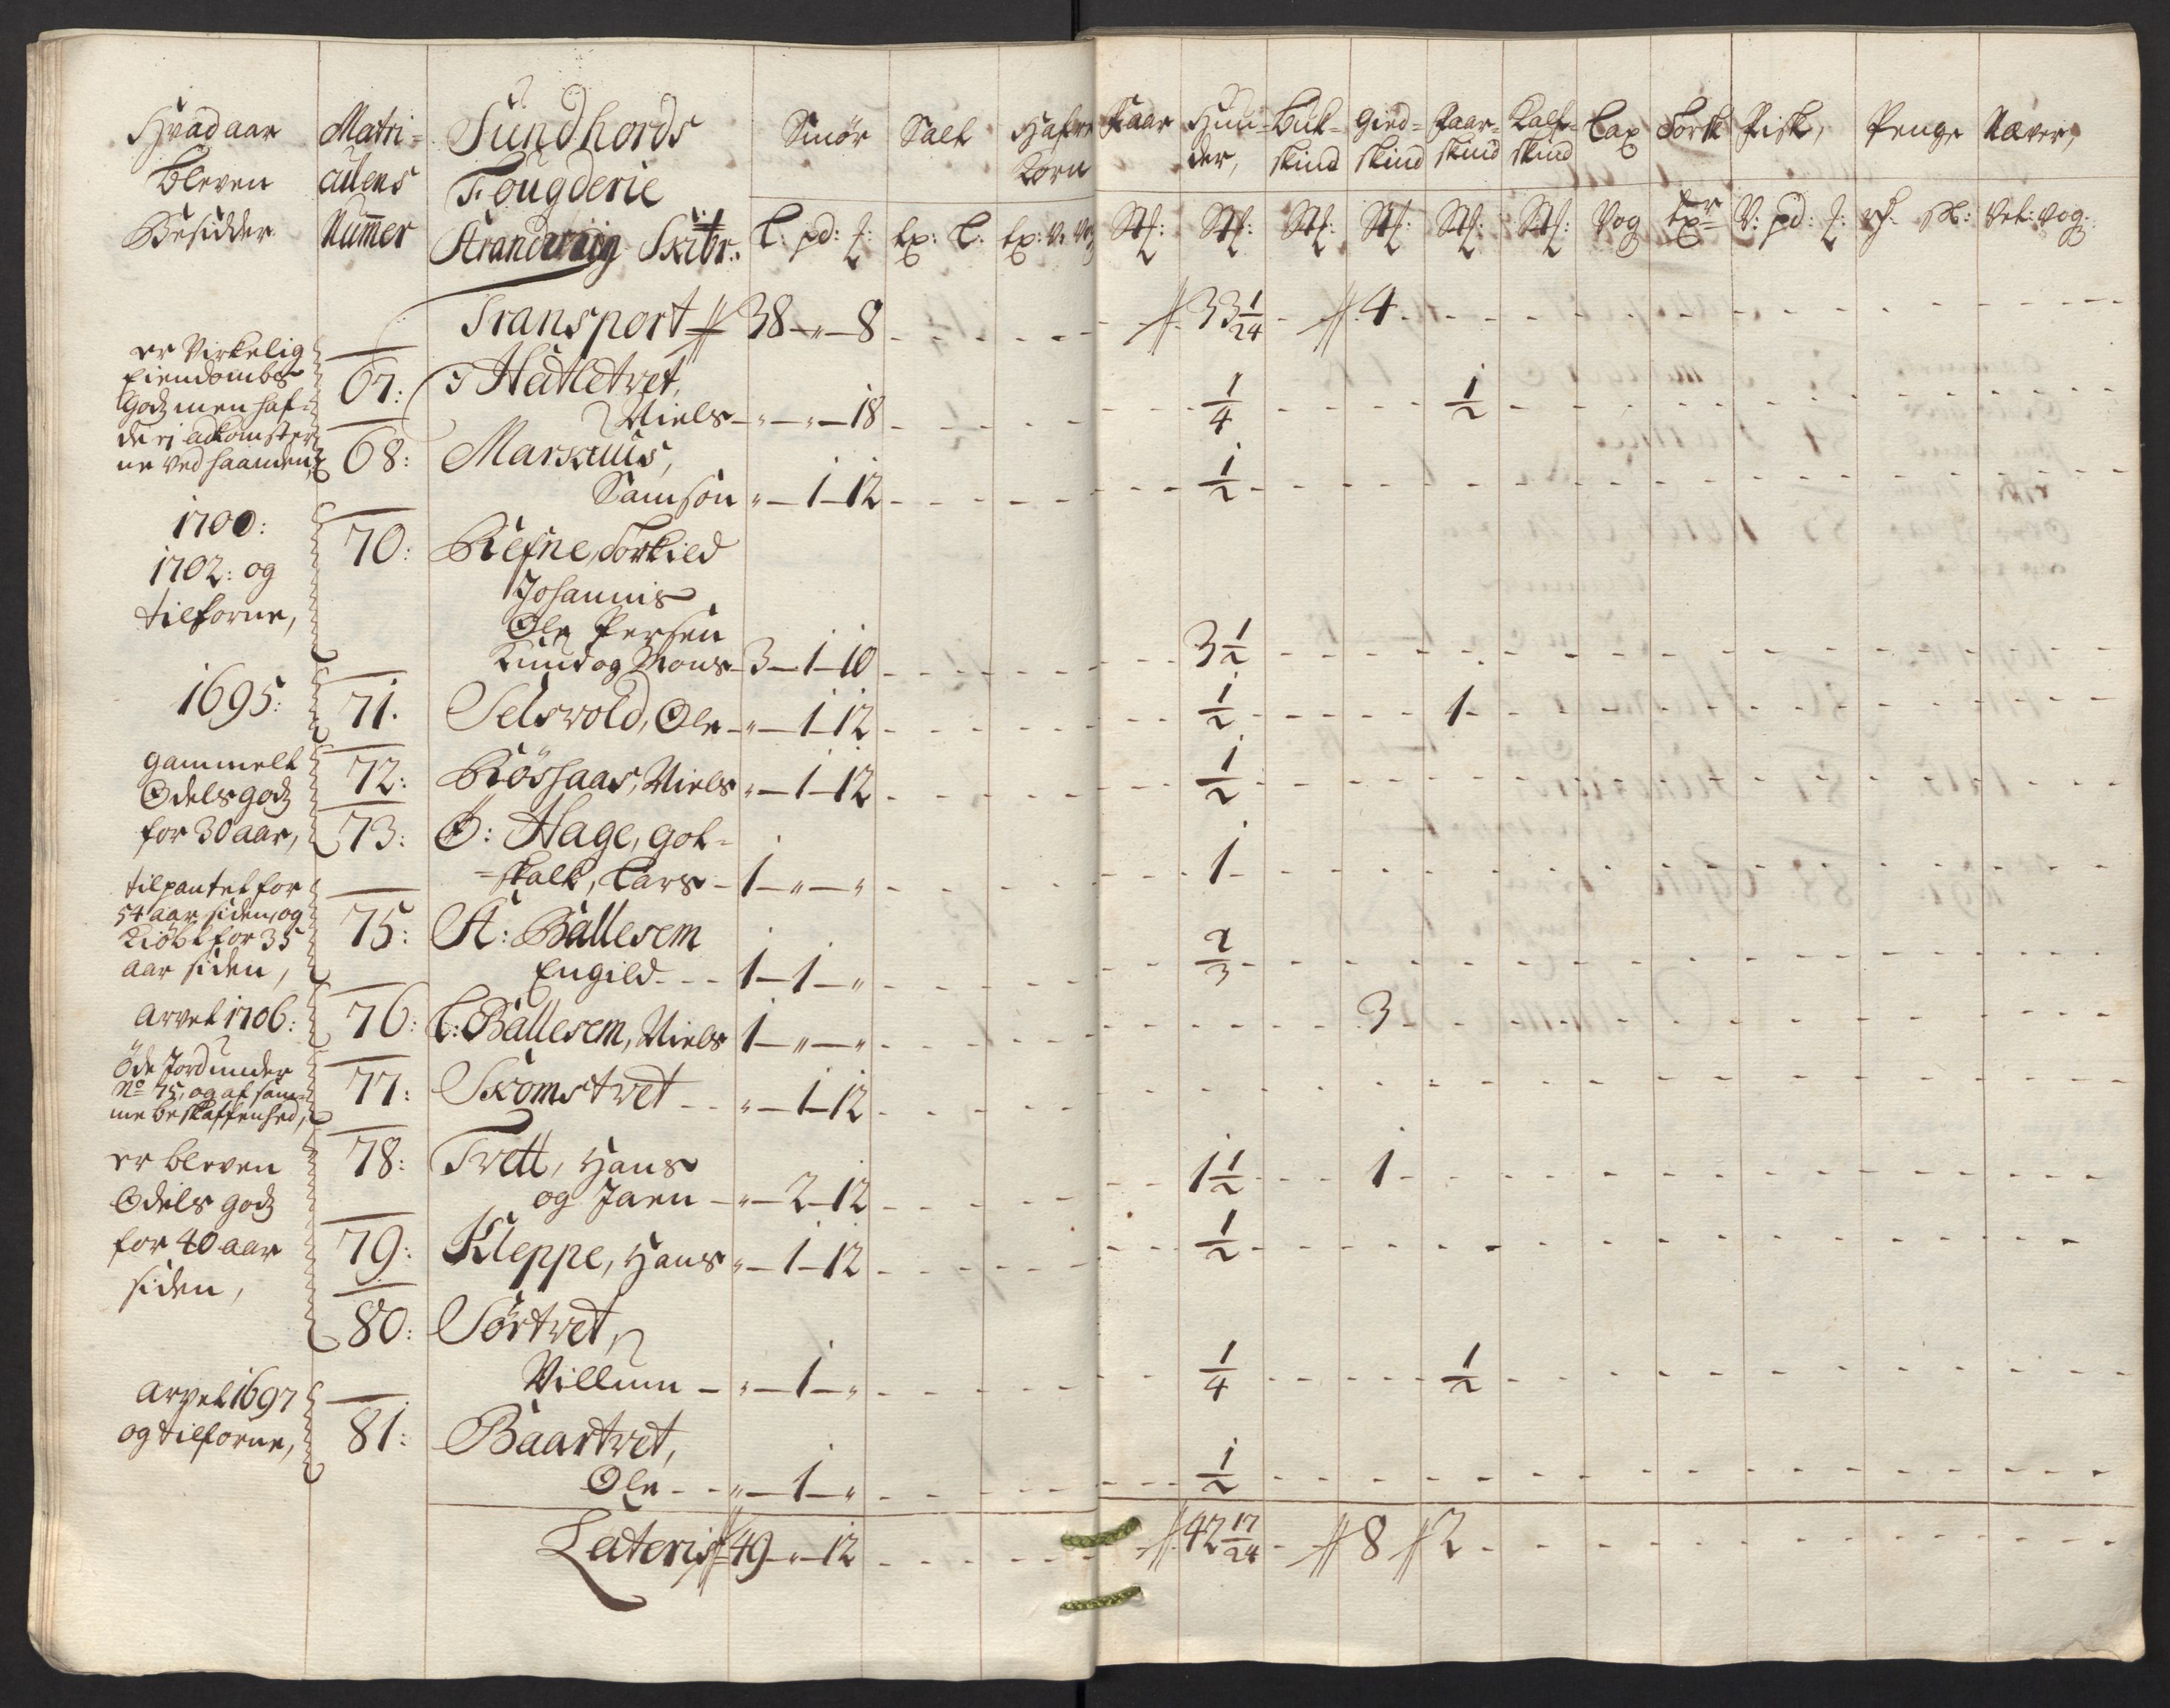 Hvad aar bleven Besidder | Matriculens Nummer | Sundhords Fougderie Strandwiig Skibr: | Smör | Salt | Hafre Korn | Faar | Huuder, | Bukskind | Giedskind | Faarskind | Kalfskind | Lax | Torsk | Fisk, | Penge | Næver,
L: pd: | Tp: L: | Tp: V: | St: | St: | St: | St: | St: | St: | Vog | V: pd:
Transport 38 - „ - 8 | 33 1/24 | 4
er Virkelig
Eiendombs
Godz men haf-
de ej adkomster
ne ved haanden,
67: Hatletvet,
Niels - „ - „ - 18 | 1/4 | 1/2
68: Markhuus,
Samson „ - 1 - 12 | 1/2
1700:
1702: og
tilforne,
70: Refne, Torkild
Johannis
Ole Persen
Knud og Mons - 3 - 1 - 10 | 3 1/2
1695: 71. Selsvold, Ole - „ - 1 - 12 | 1/2 | 1
gammelt
Odels godz
for 30 aar,
72: Röshaas, Niels „ - 1 - 12 | 1/2
73: Ö: Hage, Got-
=skalk, Lars - 1 - „ - „ | 1
tilpantet for
54 aar siden, og
kiöbt for 35
aar siden,
75: St: Ballesem
Engild - - - 1 - 1 - „ | 2/3
arvet 1706: 76: L: Ballesem, Niels 1 - „ - „ | 3
öde Jord under
No 75, og af sam-
me beskaffenhed,
77: Skomstvet - - „ - 1 - 12
er bleven
Odels godz
for 40 aar
siden,
78: Tvett, Hans
og Jaen - „ - 2 - 12 | 1 1/2 | 1
79: Kleppe, Hans „ - 1 - 12 | 1/2
80: Sörtvet,
Villum - „ - 1 - „ | 1/4 | 1/2
arvet 1697
og tilforne,
81: Baartvet,
Ole - - „ - 1 - „ | 1/2
Lateris 49 - „ - 12 | 42 17/24 | 8 | 2